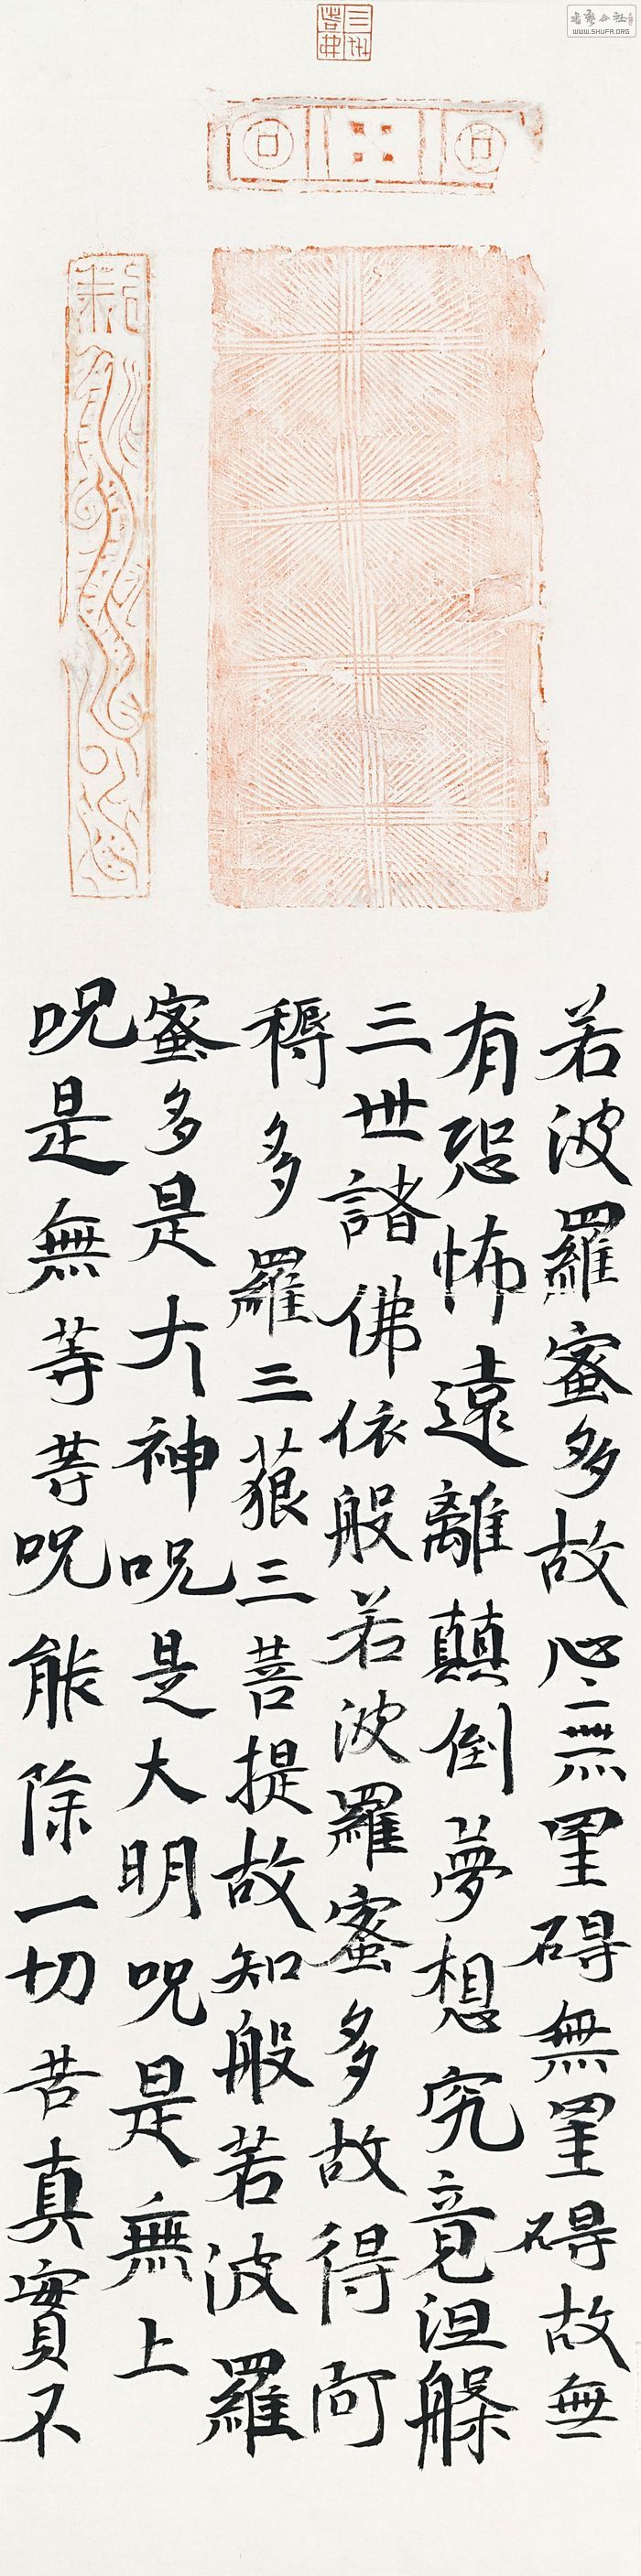 若波羅蜜多故心無罣碍無罣碍故無
有恐怖遠離顛倒夢想究竟涅槃
三世諸佛依般若波羅蜜多故得阿
耨多羅三藐三菩提故知般若波羅
蜜多是大神呪是大明呪是無上
呪是無等等呪能除一切苦真實不
WWW.SHUFA.ORG